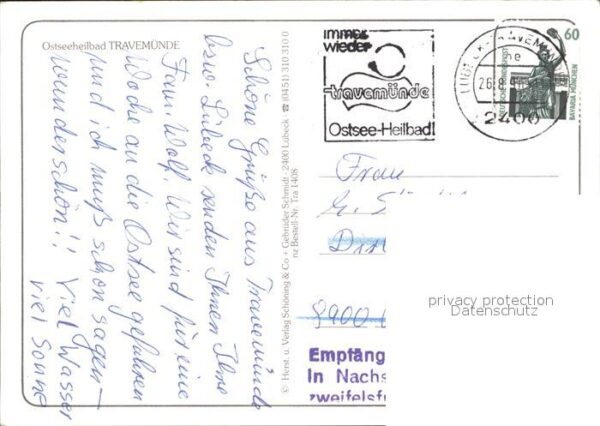 Ostseeheilbad TRAVEMÜNDE
Schöne Grüße aus Travemünde
bzw. Lübeck senden Ihnen Ihre
Fam. Wolf. Wir sind für eine
Woche an die Ostsee gefahren
und ich muß schon sagen –
wunderschön!! Viel Wasser
viel Sonne
© Herst. u. Verlag Schöning & Co + Gebrüder Schmidt · 2400 Lübeck · ☎ (0451) 310 310 0
nz Bestell-Nr. Tra 1408
immer
wieder
travemünde
Ostsee-Heilbad!
2400
60
BAVARIA MÜNCHEN
Frau
8900
Empfäng
In Nachs
zweifelsf
privacy protection
Datenschutz